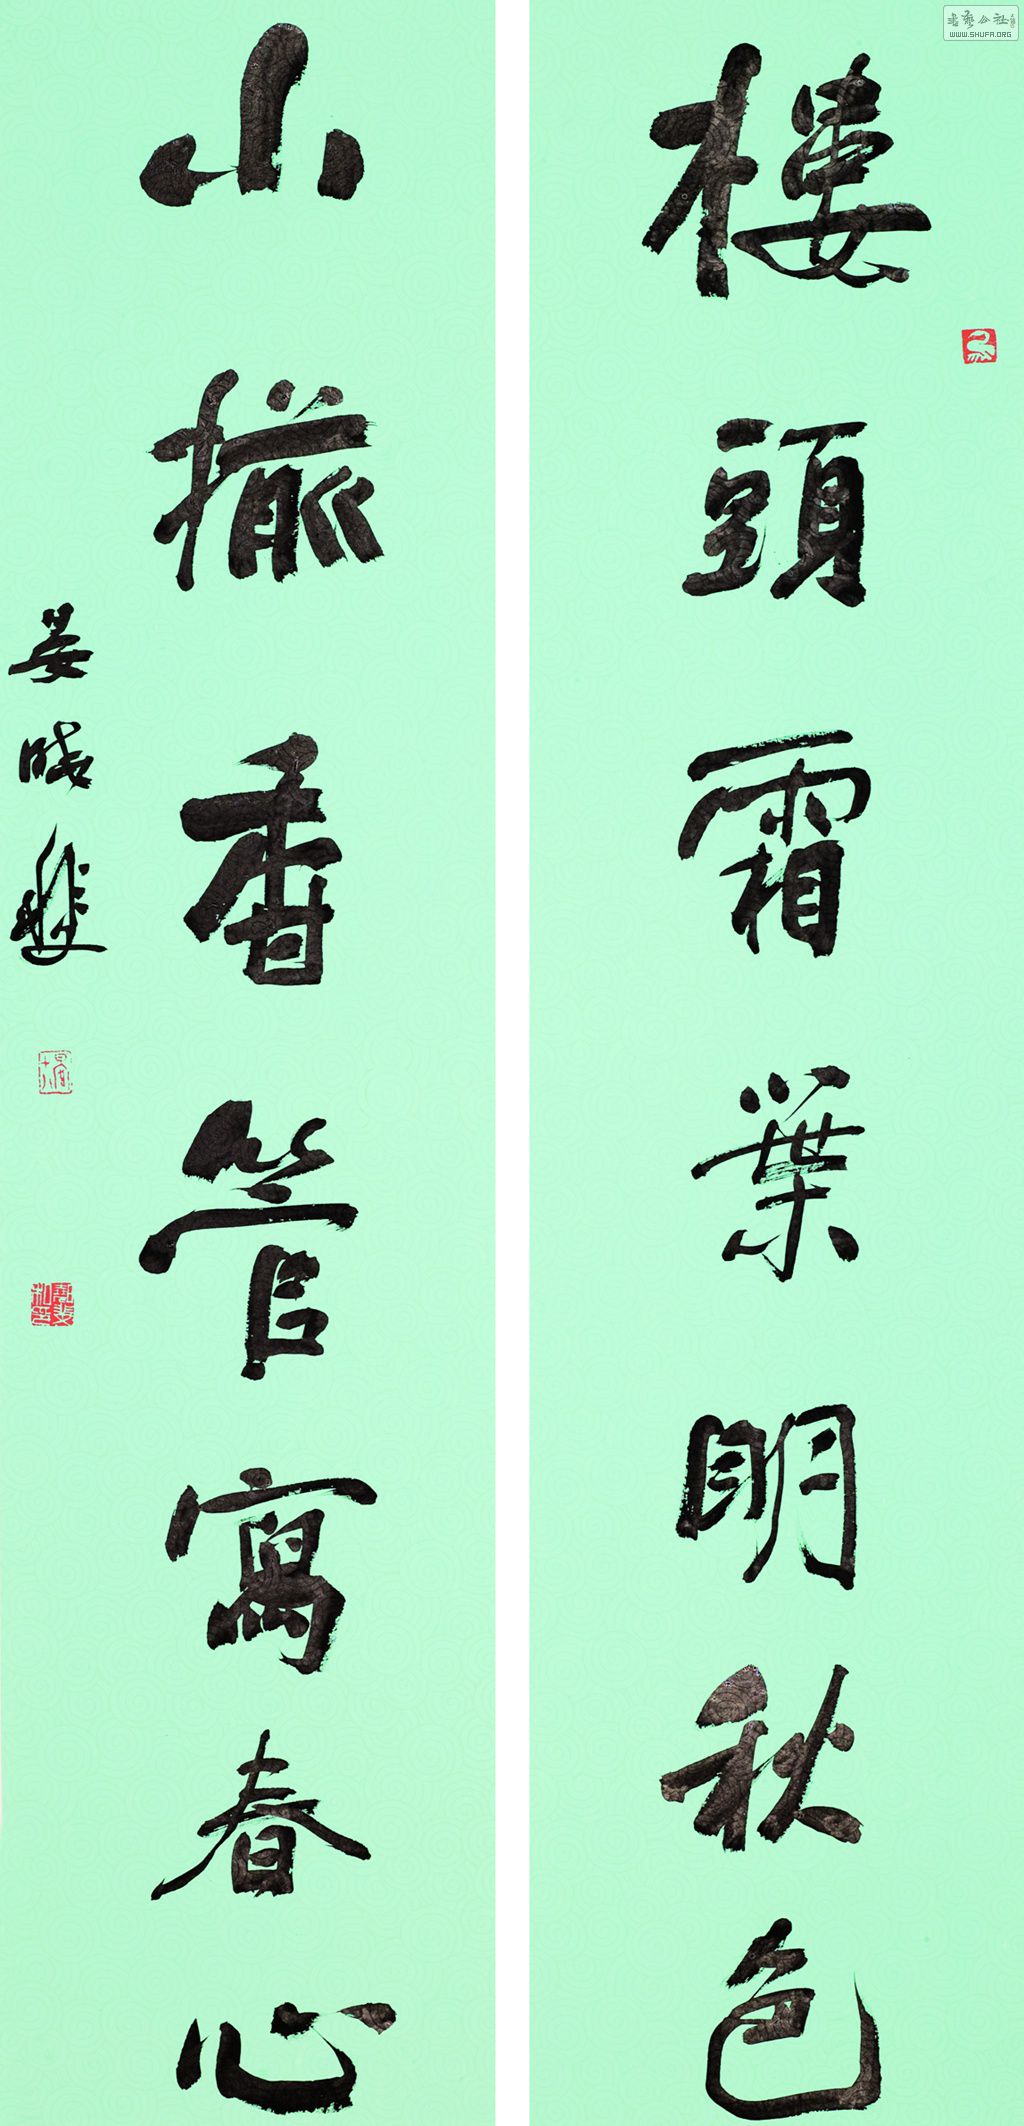 樓頭霜葉明秋色
小揄香管寫春心
晏晓斐
書藝公社
WWW.SHUFA.ORG